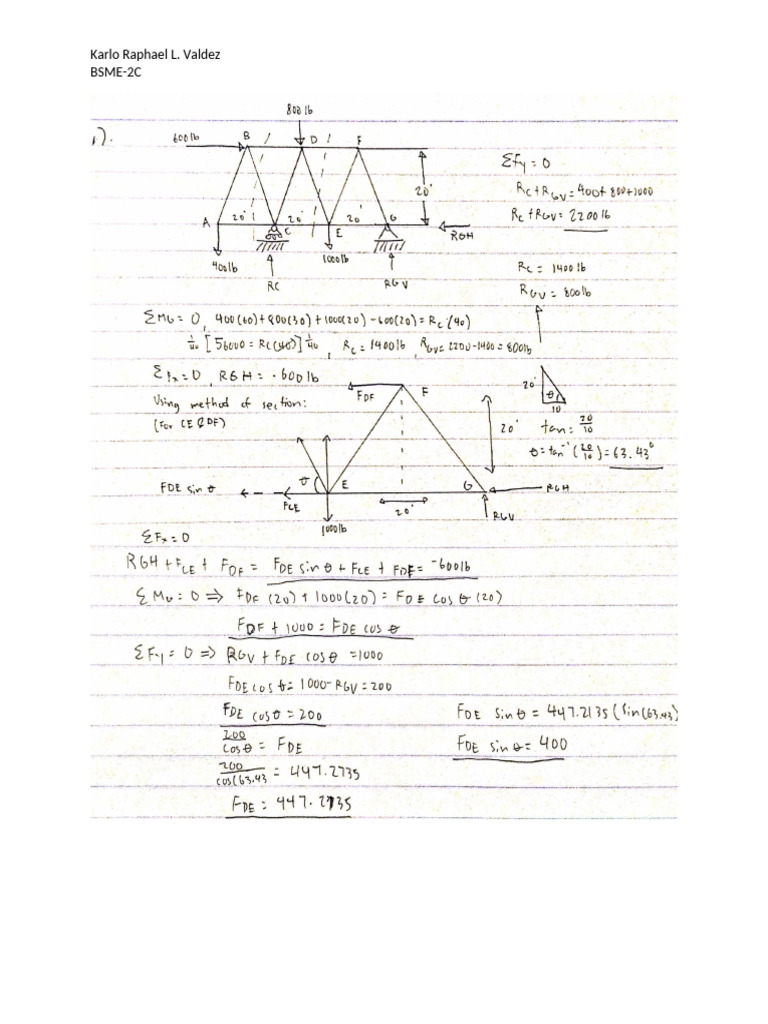 Karlo Raphael L. Valdez
BSME-2C
1).
800 lb
600 lb
B
D
F
20'
A
20'
20'
20'
C
E
G
400 lb
1000 lb
RC
RGV
RGH
ΣFy = 0
Rc + RGV = 400 + 800 + 1000
Rc + RGV = 2200 lb
Rc = 1400 lb
RGV = 800 lb
ΣMG = 0, 400(60) + 800(30) + 1000(20) - 600(20) = Rc (40)
1/40 [56000 = RC(40)] 1/40, Rc = 1400 lb, RGV = 2200 - 1400 = 800 lb
ΣFx = 0, RGH = -600 lb
Using method of section:
(for CE & DF)
FDF
F
20'
20'
θ
10
tan = 20/10
θ = tan⁻¹ (20/10) = 63.43°
FDE sin θ
θ
E
G
FCE
1000 lb
20'
RGH
RGV
ΣFx = 0
RGH + FCE + FDF = FDE sin θ + FCE + FDF = -600 lb
ΣMG = 0 ⇒ FDF (20) + 1000(20) = FDE cos θ (20)
FDF + 1000 = FDE cos θ
ΣFy = 0 ⇒ RGV + FDE cos θ = 1000
FDE cos θ = 1000 - RGV = 200
FDE cos θ = 200
200/cos θ = FDE
200/cos(63.43 = 447.2735
FDE = 447.2735
FDE sin θ = 447.2135 (sin(63.43)
FDE sin θ = 400